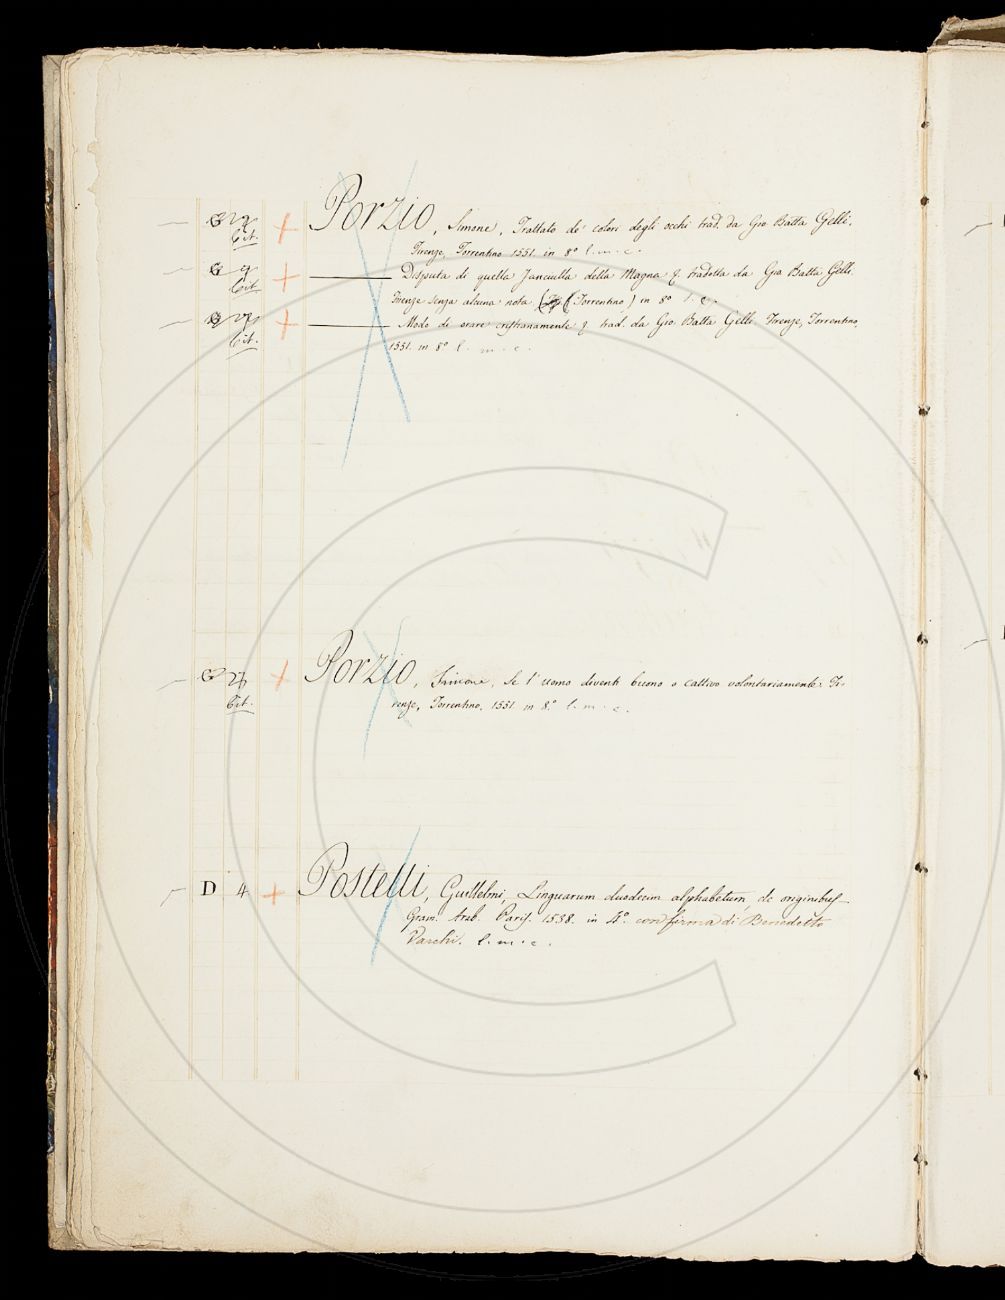 Porzio, Simone, Trattato de' colori degli occhi trad. da Gio Batta Gelli.
Cit. + Firenze, Torrentino 1551. in 8º l. m. c.
G Disputa di quella Fanciulla della Magna & tradotta da Gio Batta Gelli.
Cit + Firenze senza alcuna nota (Torrentino) in 8º l. c.
Modo di orare cristianamente & trad. da Gio. Batta Gelli. Firenze, Torrentino,
Cit. + 1551. in 8º l. m. c.
G + Porzio, Simone, Se l'uomo diventi buono o cattivo volontariamente. Fi-
Cit. renze, Torrentino. 1551. in 8.º l. m. c.
D 4 + Postelli, Guillelmi, Linguarum duodecim alphabetum, de originibus
Gram. Arab. Paris. 1538. in 4º. con firma di Benedetto
Varchi. l. m. c.